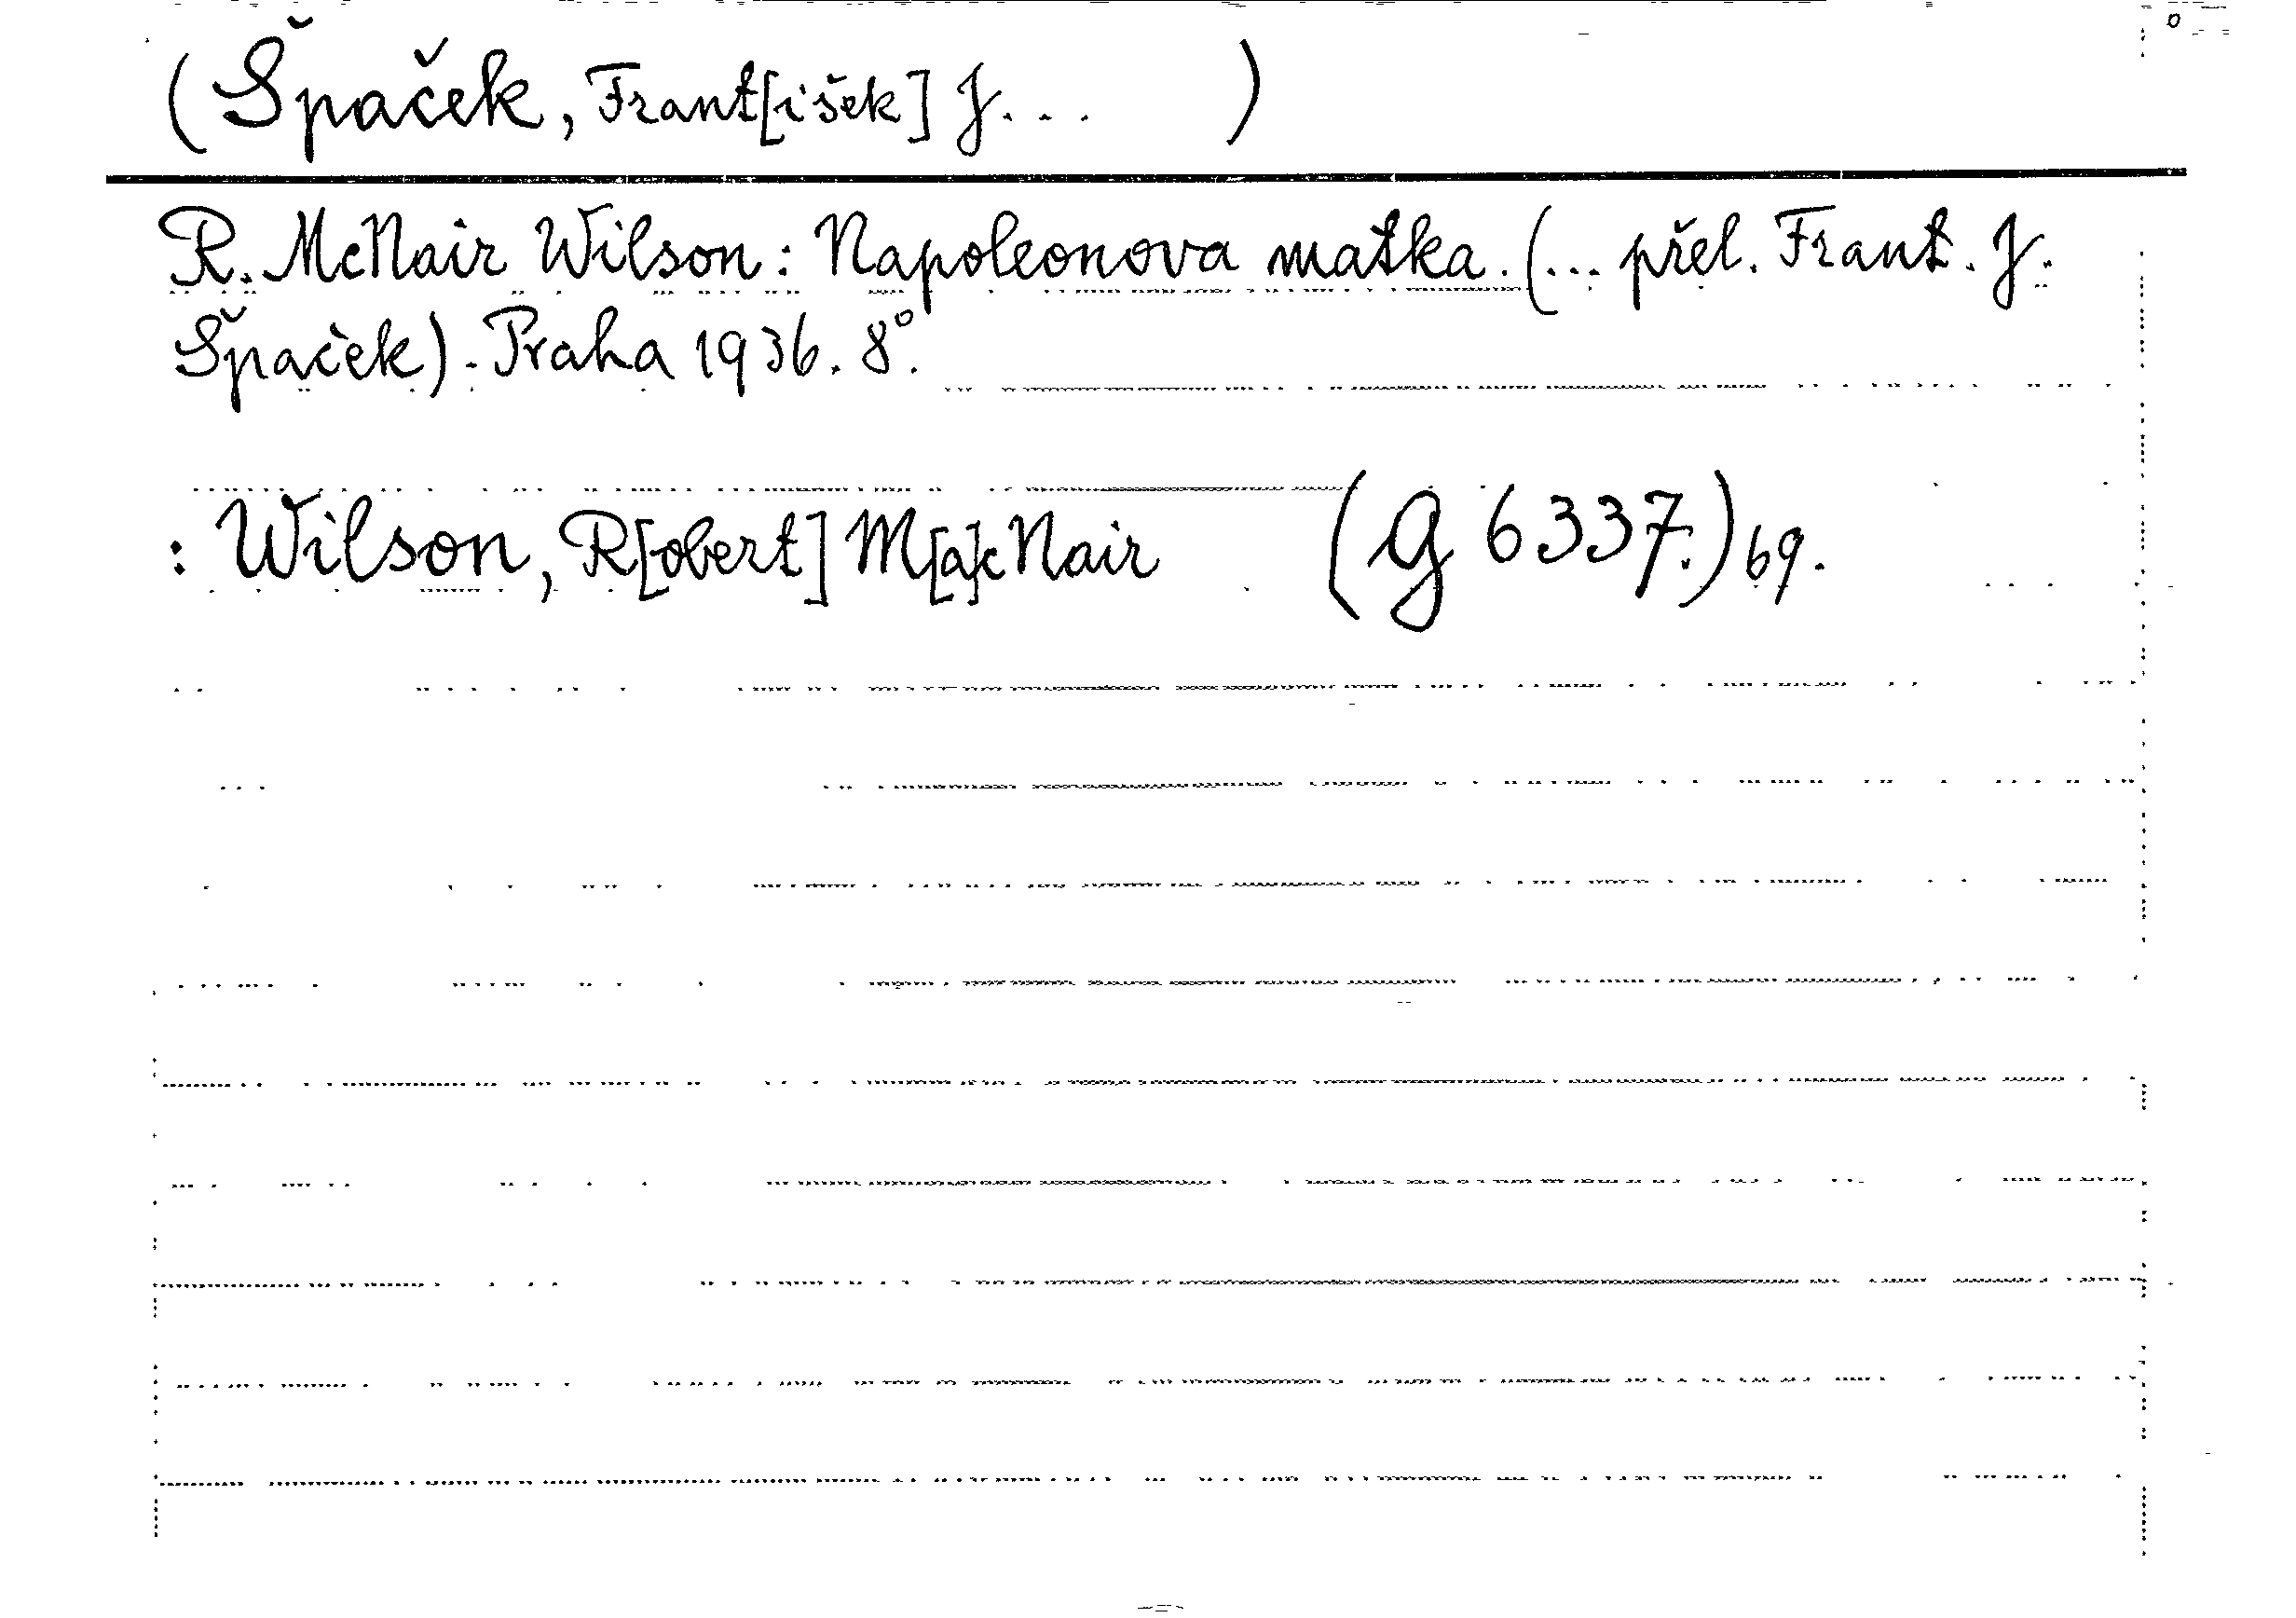 (Špaček, Frant[išek] J... )
R. McNair Wilson: Napoleonova matka. (... přel. Frant. J.
Špaček). Praha 1936. 8°.
: Wilson, R[obert] M[a]c Nair (G 6337.) 69.